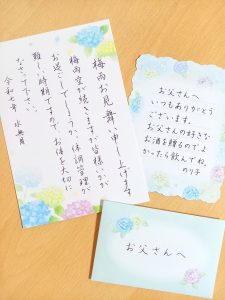 梅雨お見舞い申し上げます
梅雨空が続きますが皆様いかが
お過ごしでしょうか。体調管理が
難しい時期ですので、お体を大切に
なさって下さい。
令和七年 水無月
お父さんへ
いつもありがとう
ございます。
お父さんの好きな
お酒を贈るのでよ
かったら飲んでね。
のり子
お父さんへ